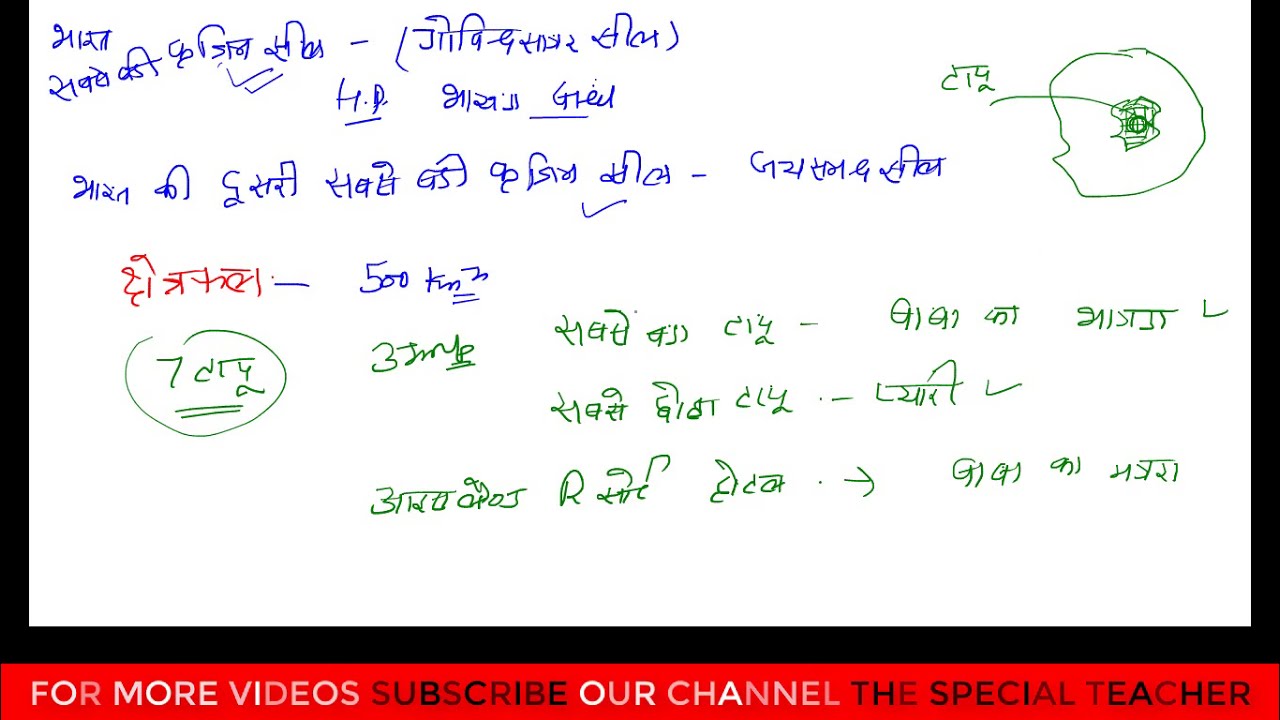 भारत
सबसे बडी कृत्रिम झील - (गोविन्दसागर झील)
H.P. भाखडा
टापू
भारत की दूसरी सबसे बडी कृत्रिम झील - जयसमन्द झील
क्षेत्रफल - 500 km²
7 टापू
सबसे बडा टापू - बाबा का भागडा
सबसे छोटा टापू - प्यारी
आइलैण्ड रिसोर्ट होटल → बाबा का मगरा
FOR MORE VIDEOS SUBSCRIBE OUR CHANNEL THE SPECIAL TEACHER